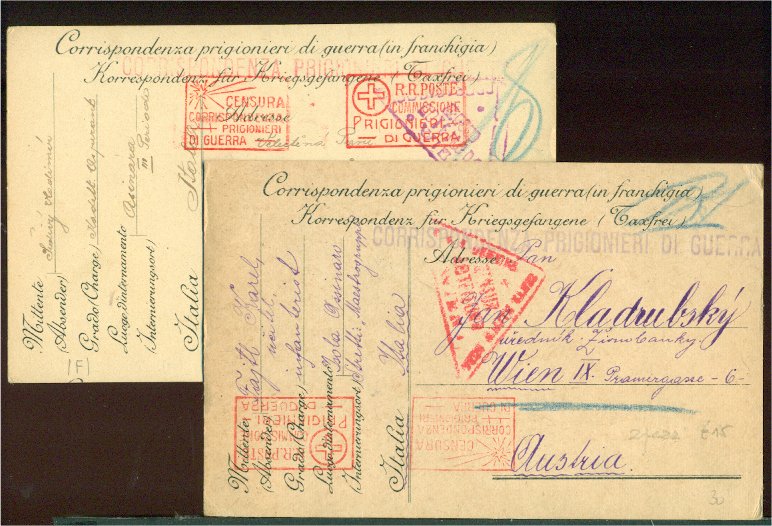 Corrispondenza prigionieri di guerra (in franchigia)
CORRISPONDENZA PRIGIONIERI
Korrespondenz für Kriegsgefangene (Taxfrei)
CENSURA
CORRISPONDENZA
PRIGIONIERI
DI GUERRA
R.R. POSTE
COMMISSIONE
PRIGIONIERI
DI GUERRA
Adresse
Mittente
(Absender)
Grado (Charge)
Luogo d'internamento
Asinara
(Internierungsort)
Italia
(F)
Corrispondenza prigionieri di guerra (in franchigia)
Korrespondenz für Kriegsgefangene (Taxfrei)
CORRISPONDENZA PRIGIONIERI DI GUERRA
Adresse Pan
Jan Kladrubský
úředník Živnobanky
Wien IX. Pramergasse - 6 -
Austria.
Mittente
(Absender)
Fajtl Karel
Grado (Charge)
infanterist
Luogo d'internamento
Isola Assinara
(Internierungsort)
Italia
Italia
R.R. POSTE
COMMISSIONE
PRIGIONIERI
DI GUERRA
CENSURA
CORRISPONDENZA
PRIGIONIERI
DI GUERRA
£15
30